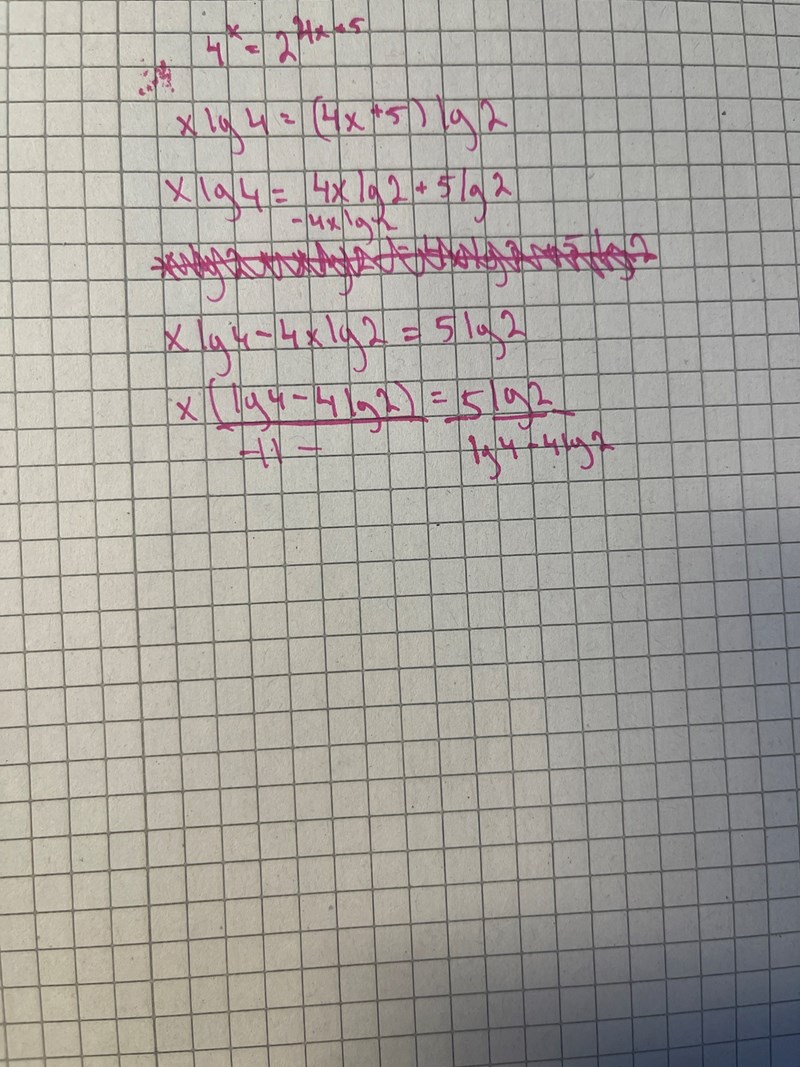 4^x = 2^(4x+5)
x lg 4 = (4x+5) lg 2
x lg 4 = 4x lg 2 + 5 lg 2
-4x lg 2
x lg 4 - 4x lg 2 = 5 lg 2
x (lg 4 - 4 lg 2) = 5 lg 2
-11- lg 4 - 4 lg 2